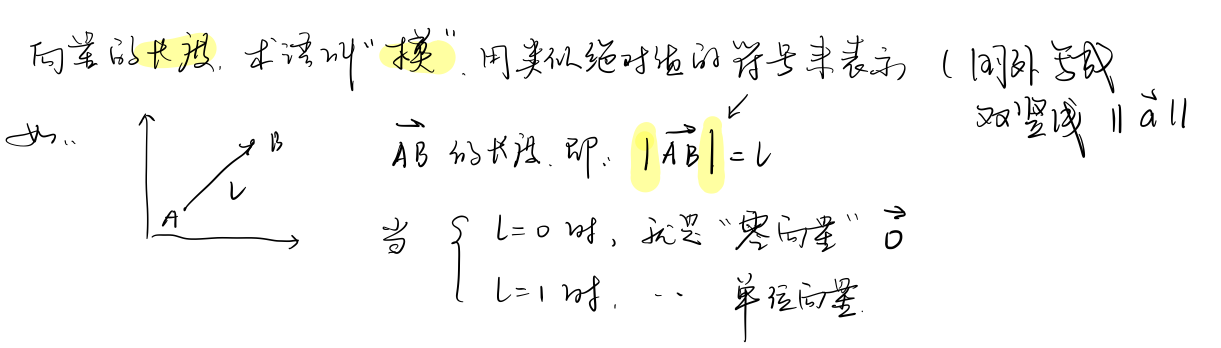 向量的长度,术语叫“模”,用类似绝对值的符号来表示(国外写成
双竖线 ‖a⃗‖
如: B
AB⃗ 的长度,即: |AB⃗| = L
L
A
当 { L=0 时,就是“零向量” 0⃗
L=1 时, ‥ 单位向量.